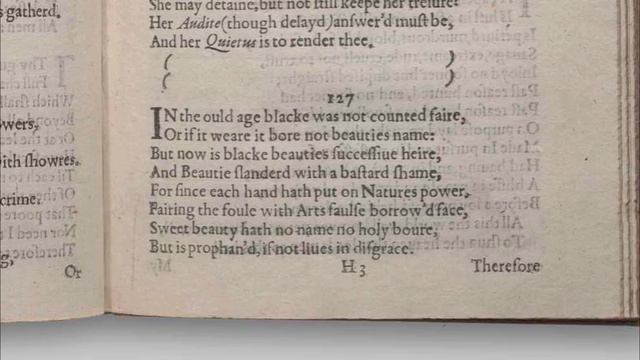 s gatherd.
owers,
with showres.
crime.
g,
Or
She may detaine, but not still keepe her tresure!
Her Audite (though delayd) answer'd must be,
And her Quietus is to render thee.
( )
( )
127
IN the ould age blacke was not counted faire,
Or if it weare it bore not beauties name:
But now is blacke beauties successiue heire,
And Beautie slanderd with a bastard shame,
For since each hand hath put on Natures power,
Fairing the foule with Arts faulse borrow'd face,
Sweet beauty hath no name no holy boure,
But is prophan'd, if not liues in disgrace.
H 3 Therefore